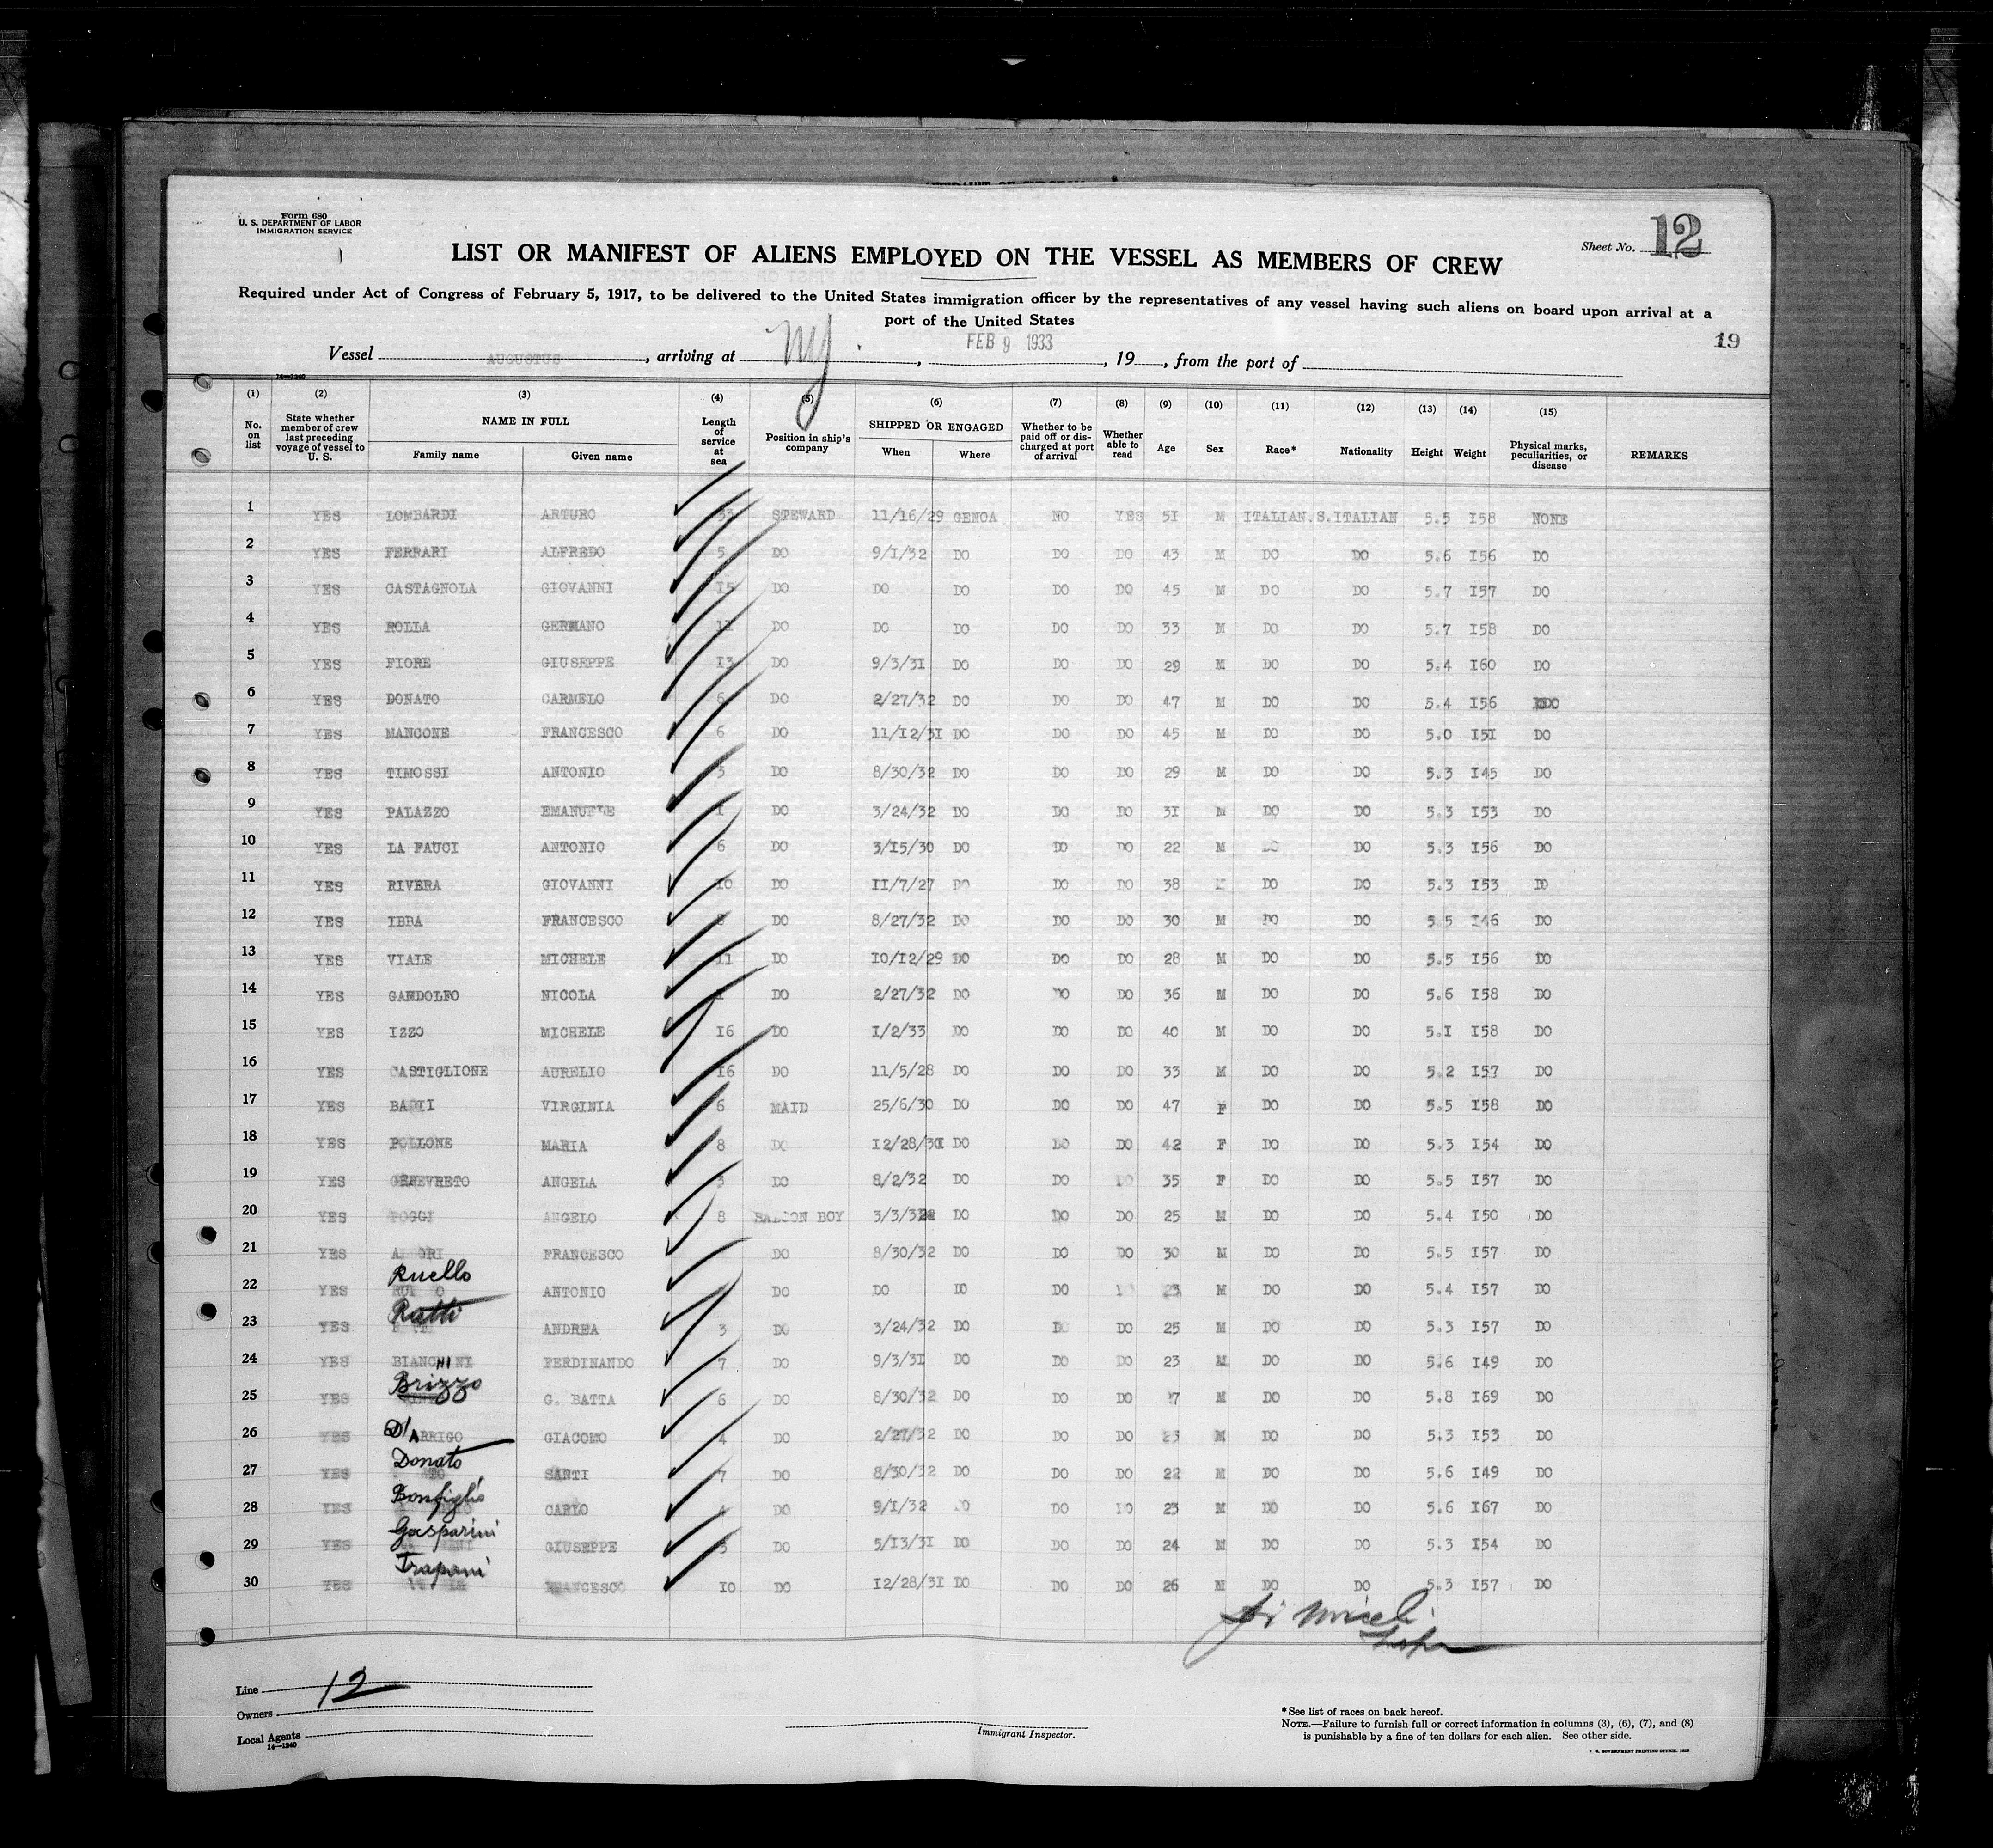 Form 680
U. S. DEPARTMENT OF LABOR
IMMIGRATION SERVICE
Sheet No. 12
LIST OR MANIFEST OF ALIENS EMPLOYED ON THE VESSEL AS MEMBERS OF CREW
Required under Act of Congress of February 5, 1917, to be delivered to the United States immigration officer by the representatives of any vessel having such aliens on board upon arrival at a
port of the United States
19
Vessel AUGUSTUS, arriving at NY., FEB 9 1933, 19, from the port of
14—1240
(1) (2) (3) (4) (5) (6) (7) (8) (9) (10) (11) (12) (13) (14) (15)
No. on list State whether member of crew last preceding voyage of vessel to U. S. NAME IN FULL Family name Given name Length of service at sea Position in ship's company SHIPPED OR ENGAGED When Where Whether to be paid off or discharged at port of arrival Whether able to read Age Sex Race* Nationality Height Weight Physical marks, peculiarities, or disease REMARKS
1 YES LOMBARDI ARTURO 33 STEWARD 11/16/29 GENOA NO YES 51 M ITALIAN.S. ITALIAN 5.5 158 NONE
2 YES FERRARI ALFREDO 5 DO 9/1/32 DO DO DO 43 M DO DO 5.6 156 DO
3 YES CASTAGNOLA GIOVANNI 15 DO DO DO DO DO 45 M DO DO 5.7 157 DO
4 YES ROLLA GERMANO DO DO DO DO DO 33 M DO DO 5.7 158 DO
5 YES FIORE GIUSEPPE 13 DO 9/3/31 DO DO DO 29 M DO DO 5.4 160 DO
6 YES DONATO CARMELO 6 DO 2/27/32 DO DO DO 47 M DO DO 5.4 156 DO
7 YES MANCONE FRANCESCO 6 DO 11/12/31 DO DO DO 45 M DO DO 5.0 151 DO
8 YES TIMOSSI ANTONIO 3 DO 8/30/32 DO DO DO 29 M DO DO 5.3 145 DO
9 YES PALAZZO EMANUELE 1 DO 3/24/32 DO DO DO 31 M DO DO 5.3 153 DO
10 YES LA FAUCI ANTONIO 6 DO 3/15/30 DO DO DO 22 M DO DO 5.3 156 DO
11 YES RIVERA GIOVANNI 10 DO 11/7/27 DO DO DO 38 M DO DO 5.3 153 DO
12 YES IBBA FRANCESCO 8 DO 8/27/32 DO DO DO 30 M DO DO 5.5 146 DO
13 YES VIALE MICHELE 11 DO 10/12/29 DO DO DO 28 M DO DO 5.5 156 DO
14 YES GANDOLFO NICOLA DO 2/27/32 DO DO DO 36 M DO DO 5.6 158 DO
15 YES IZZO MICHELE 16 DO 1/2/33 DO DO DO 40 M DO DO 5.1 158 DO
16 YES CASTIGLIONE AURELIO 16 DO 11/5/28 DO DO DO 33 M DO DO 5.2 157 DO
17 YES VIRGINIA 6 MAID 25/6/30 DO DO DO 47 F DO DO 5.5 158 DO
18 YES POLLONE MARIA 8 DO 12/28/31 DO DO DO 42 F DO DO 5.3 154 DO
19 YES GENEVRETO ANGELA 3 DO 8/2/32 DO DO DO 35 F DO DO 5.5 157 DO
20 YES POGGI ANGELO 8 SALOON BOY 3/3/32 DO DO DO 25 M DO DO 5.4 150 DO
21 YES FRANCESCO DO 8/30/32 DO DO DO 30 M DO DO 5.5 157 DO
22 YES Ruello ANTONIO DO DO DO DO 23 M DO DO 5.4 157 DO
23 YES Ratti ANDREA 3 DO 3/24/32 DO DO DO 25 M DO DO 5.3 157 DO
24 YES BIANCHINI FERDINANDO 7 DO 9/3/31 DO DO DO 23 M DO DO 5.6 149 DO
25 YES Brizzo G. BATTA 6 DO 8/30/32 DO DO DO M DO DO 5.8 169 DO
26 YES D'ARRIGO GIACOMO 4 DO 2/27/32 DO DO DO 23 M DO DO 5.3 153 DO
27 YES Donato SANTI 7 DO 8/30/32 DO DO DO 22 M DO DO 5.6 149 DO
28 YES Bonfiglio CARLO 4 DO 9/1/32 DO DO DO 23 M DO DO 5.6 167 DO
29 YES Gasparini GIUSEPPE DO 5/13/31 DO DO DO 24 M DO DO 5.3 154 DO
30 YES Trapani FRANCESCO 10 DO 12/28/31 DO DO DO 26 M DO DO 5.3 157 DO
Line 12
Owners
Local Agents
14—1240
Immigrant Inspector.
*See list of races on back hereof.
NOTE.—Failure to furnish full or correct information in columns (3), (6), (7), and (8)
is punishable by a fine of ten dollars for each alien. See other side.